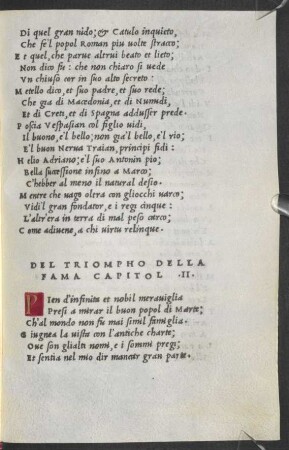 Di quel gran nido; & Catulo inquieto,
Che fe'l popol Roman piu uolte stracco;
Et quel, che parue altrui beato et lieto;
Non dico fu: che non chiaro si uede
Vn chiuso cor in suo alto secreto:
Metello dico, et suo padre, et suo rede;
Che gia di Macedonia, et di Numidi,
Et di Creti, et di Spagna addusser prede.
Poscia Vespasian col figlio uidi,
Il buono, e'l bello; non gia'l bello, e'l rio;
E'l buon Nerua Traian, principi fidi:
Helio Adriano; e'l suo Antonin pio;
Bella successione infino a Marco;
C'hebber al meno il natural desio.
Mentre che uago oltra con gliocchi uarco;
Vidi'l gran fondator, e i regi cinque:
L'altr'era in terra di mal peso carco;
Come adiuene, a chi uirtu relinque.
DEL TRIOMPHO DELLA
FAMA CAPITOL .II.
Pien d'infinita et nobil merauiglia
Presi a mirar il buon popol di Marte;
Ch'al mondo non fu mai simil famiglia.
Giugnea la uista con l'antiche charte;
Oue son glialti nomi, e i sommi pregi;
Et sentia nel mio dir mancar gran parte.